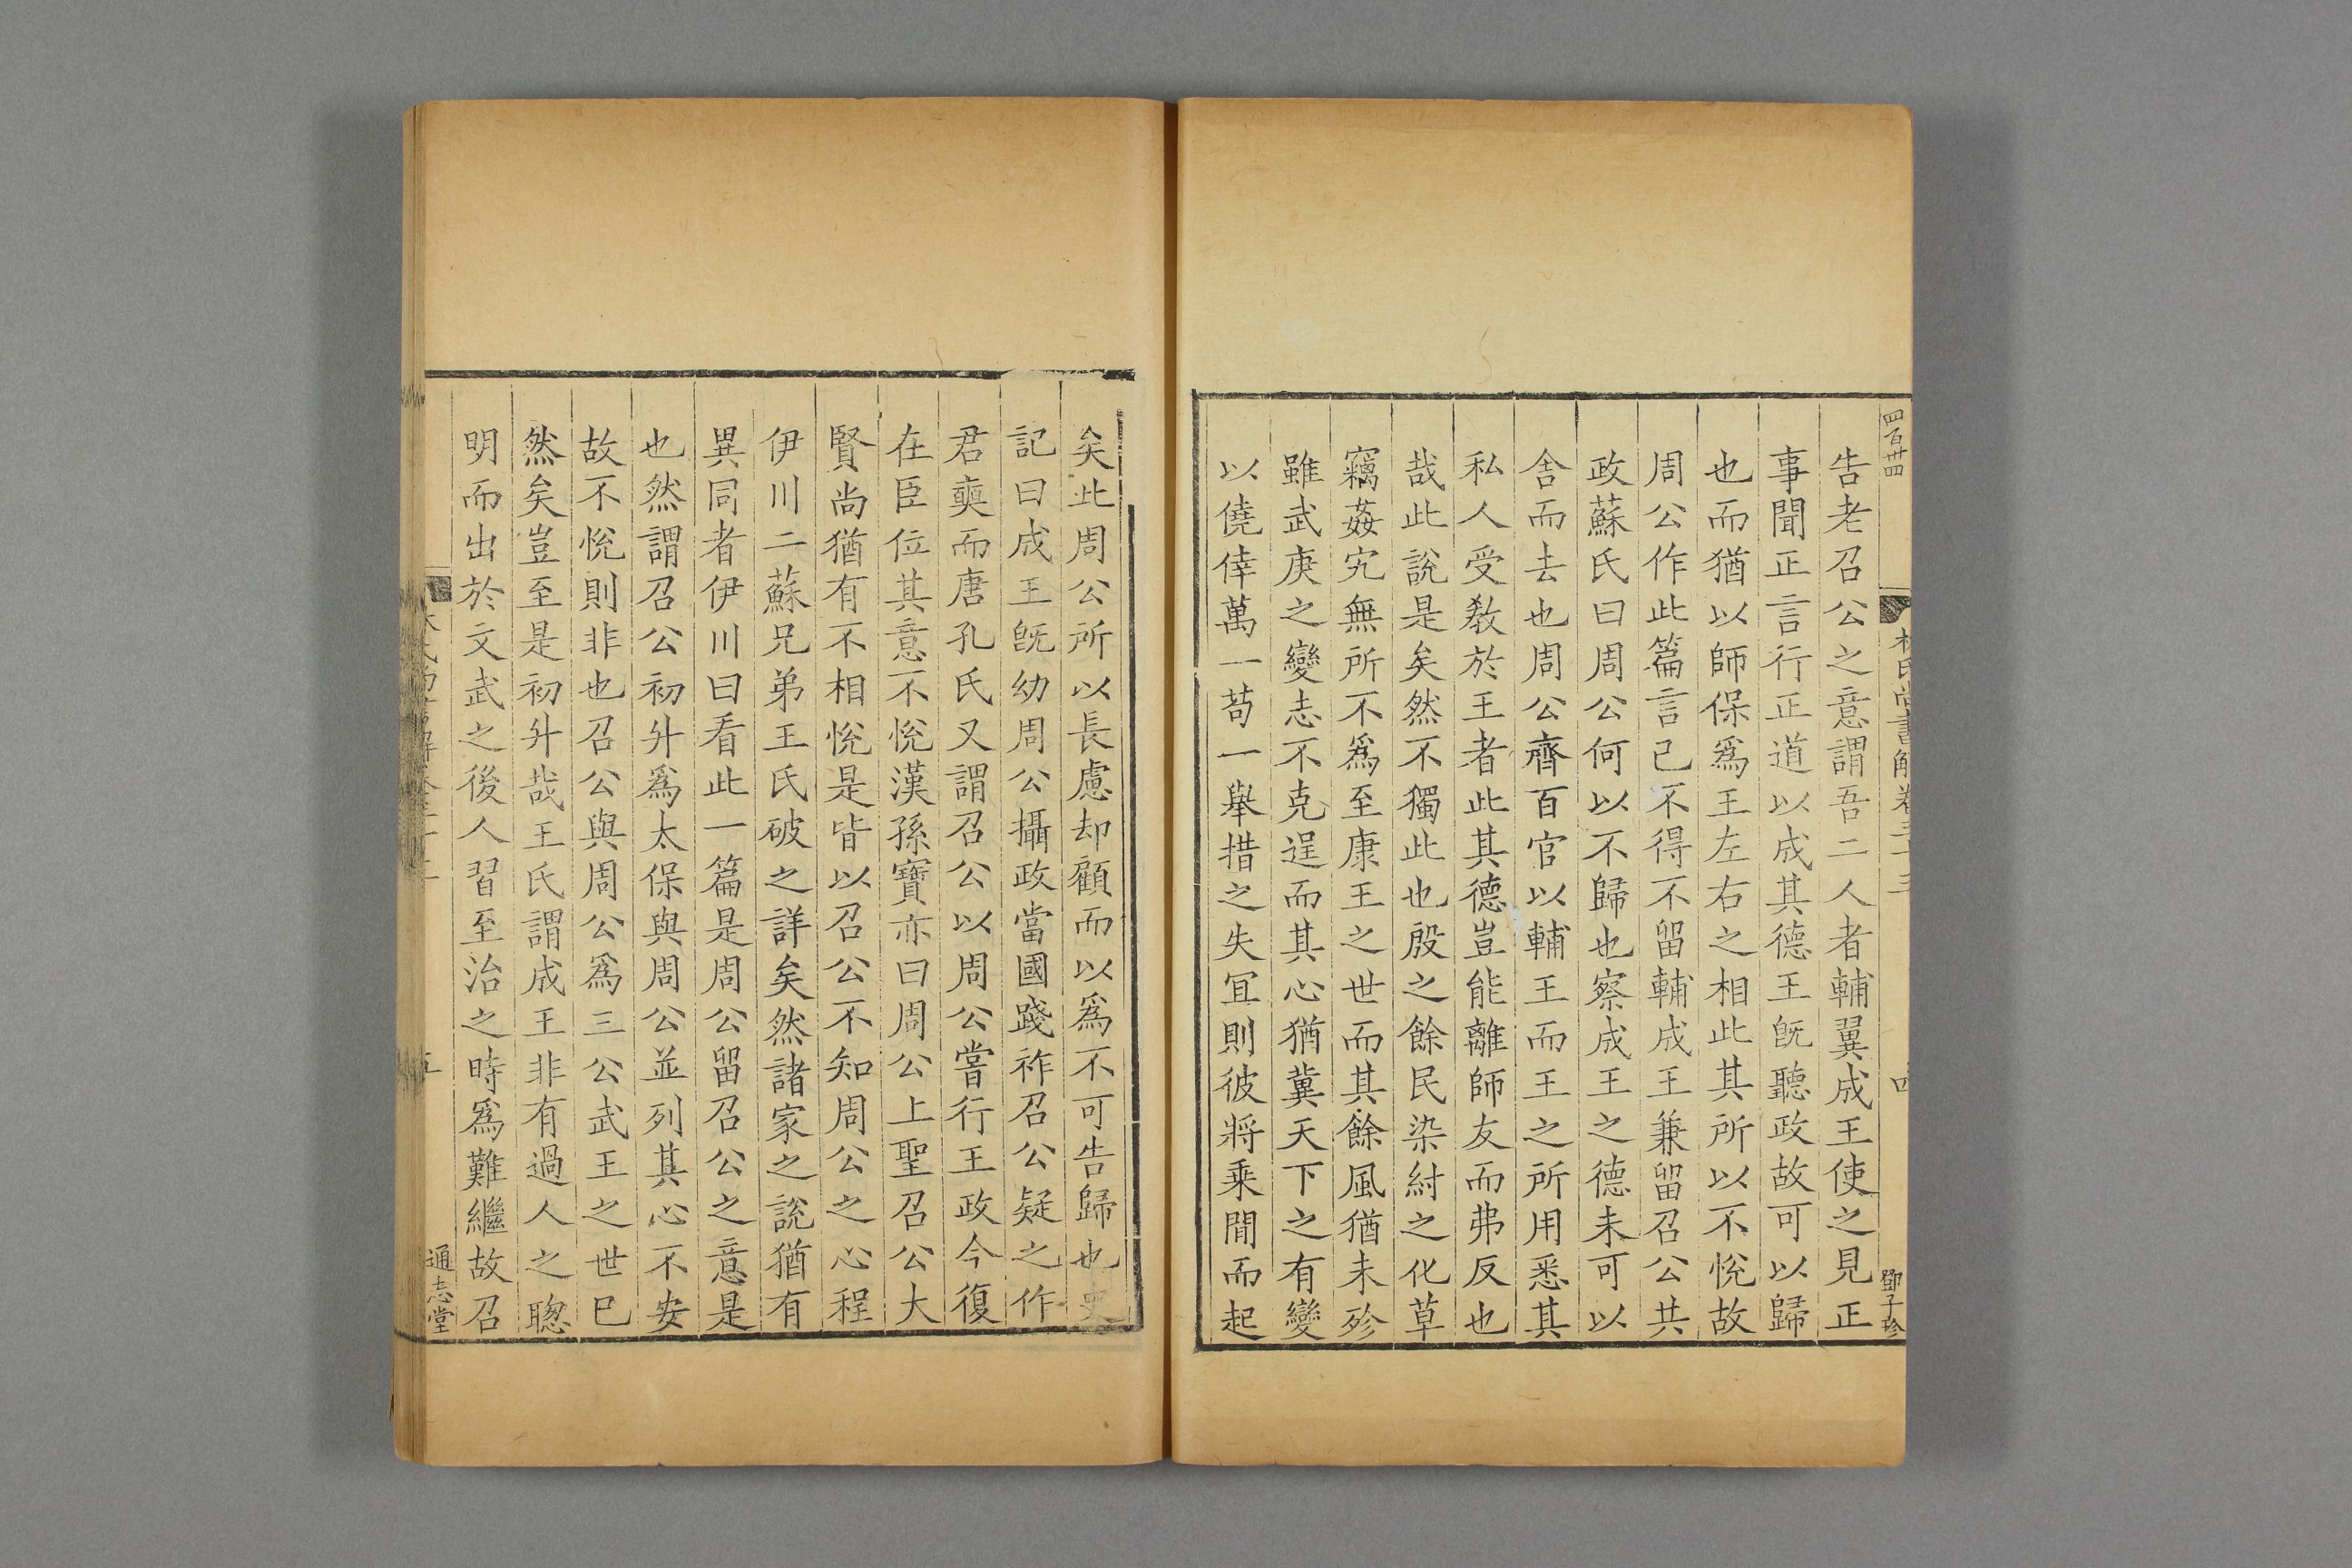 四百廿四
林氏尚書解卷三十三
四
鄧子珍
告老召公之意謂吾二人者輔翼成王使之見正
事聞正言行正道以成其德王旣聽政故可以歸
也而猶以師保爲王左右之相此其所以不悅故
周公作此篇言已不得不留輔成王兼留召公共
政蘇氏曰周公何以不歸也察成王之德未可以
舍而去也周公齊百官以輔王而王之所用悉其
私人受敎於王者此其德豈能離師友而弗反也
哉此說是矣然不獨此也殷之餘民染紂之化草
竊姦宄無所不爲至康王之世而其餘風猶未殄
雖武庚之變志不克逞而其心猶冀天下之有變
以僥倖萬一苟一舉措之失冝則彼將乘間而起
矣此周公所以長慮却顧而以爲不可告歸也史
記曰成王旣幼周公攝政當國踐祚召公疑之作
君奭而唐孔氏又謂召公以周公嘗行王政今復
在臣位其意不悅漢孫寶亦曰周公上聖召公大
賢尚猶有不相悅是皆以召公不知周公之心程
伊川二蘇兄弟王氏破之詳矣然諸家之說猶有
異同者伊川曰看此一篇是周公留召公之意是
也然謂召公初升爲太保與周公並列其心不安
故不悅則非也召公與周公爲三公武王之世巳
然矣豈至是初升哉王氏謂成王非有過人之聰
明而出於文武之後人習至治之時爲難繼故召
五
通志堂